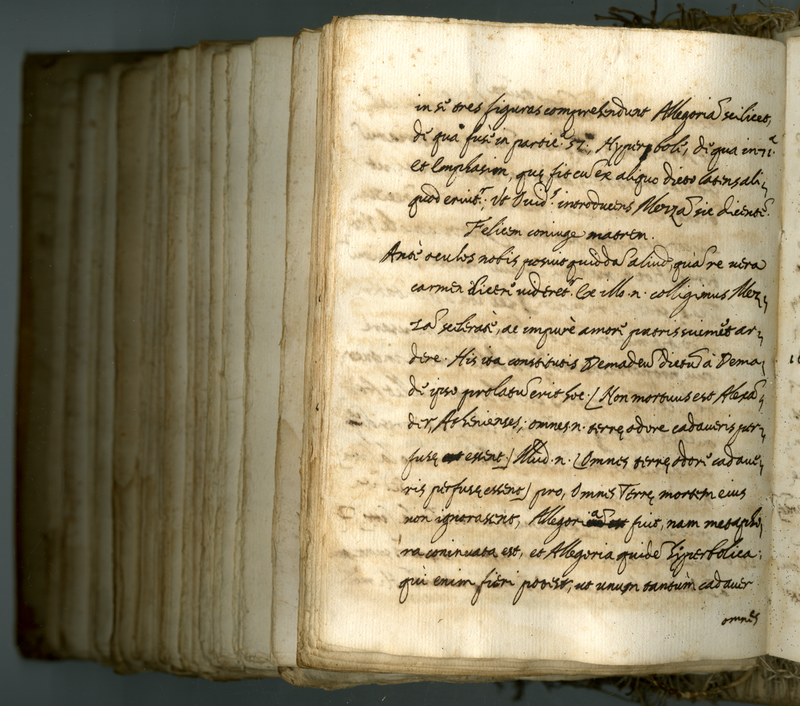 in se tres figuras comprehendunt Allegoria~ scilicet,
de qua fusè in partic.e 51. Hyperbole, de qua in 71.a
et Emphasim, quę fit cu~ ex aliquo dicto latens ali,,
quod eruit.r Ut Ovid.s introducens Mirra~ sic dicente~.
Felicem coniuge matrem.
Ante oculos nobis posuit quidda~ aliud, qua~ re vera
carmen dicere videret.r Ex illo .n. colligimus Mir,,
ra~ scelerate, ac impurè amore patris sui met ar,,
dere. His ita constitutis Demadeu~ dictu~ à Dema,,
de ipso prolatu~ erit hoc. (Non mortuus est Alexa~,,
der, Athenienses; omnes .n. terrę odore cadaveris per,,
fusę essent) Illud .n. (Omnes terrę odore cadave,,
ris perfusę essent) pro, Omnes Terrę mortem eius
non ignorassent, Allegoria fuit, nam metapho,,
ra coninuata est, et Allegoria quide~ Hyperbolica;
qui enim fieri potest, ut unum tantùm cadaver
omnes